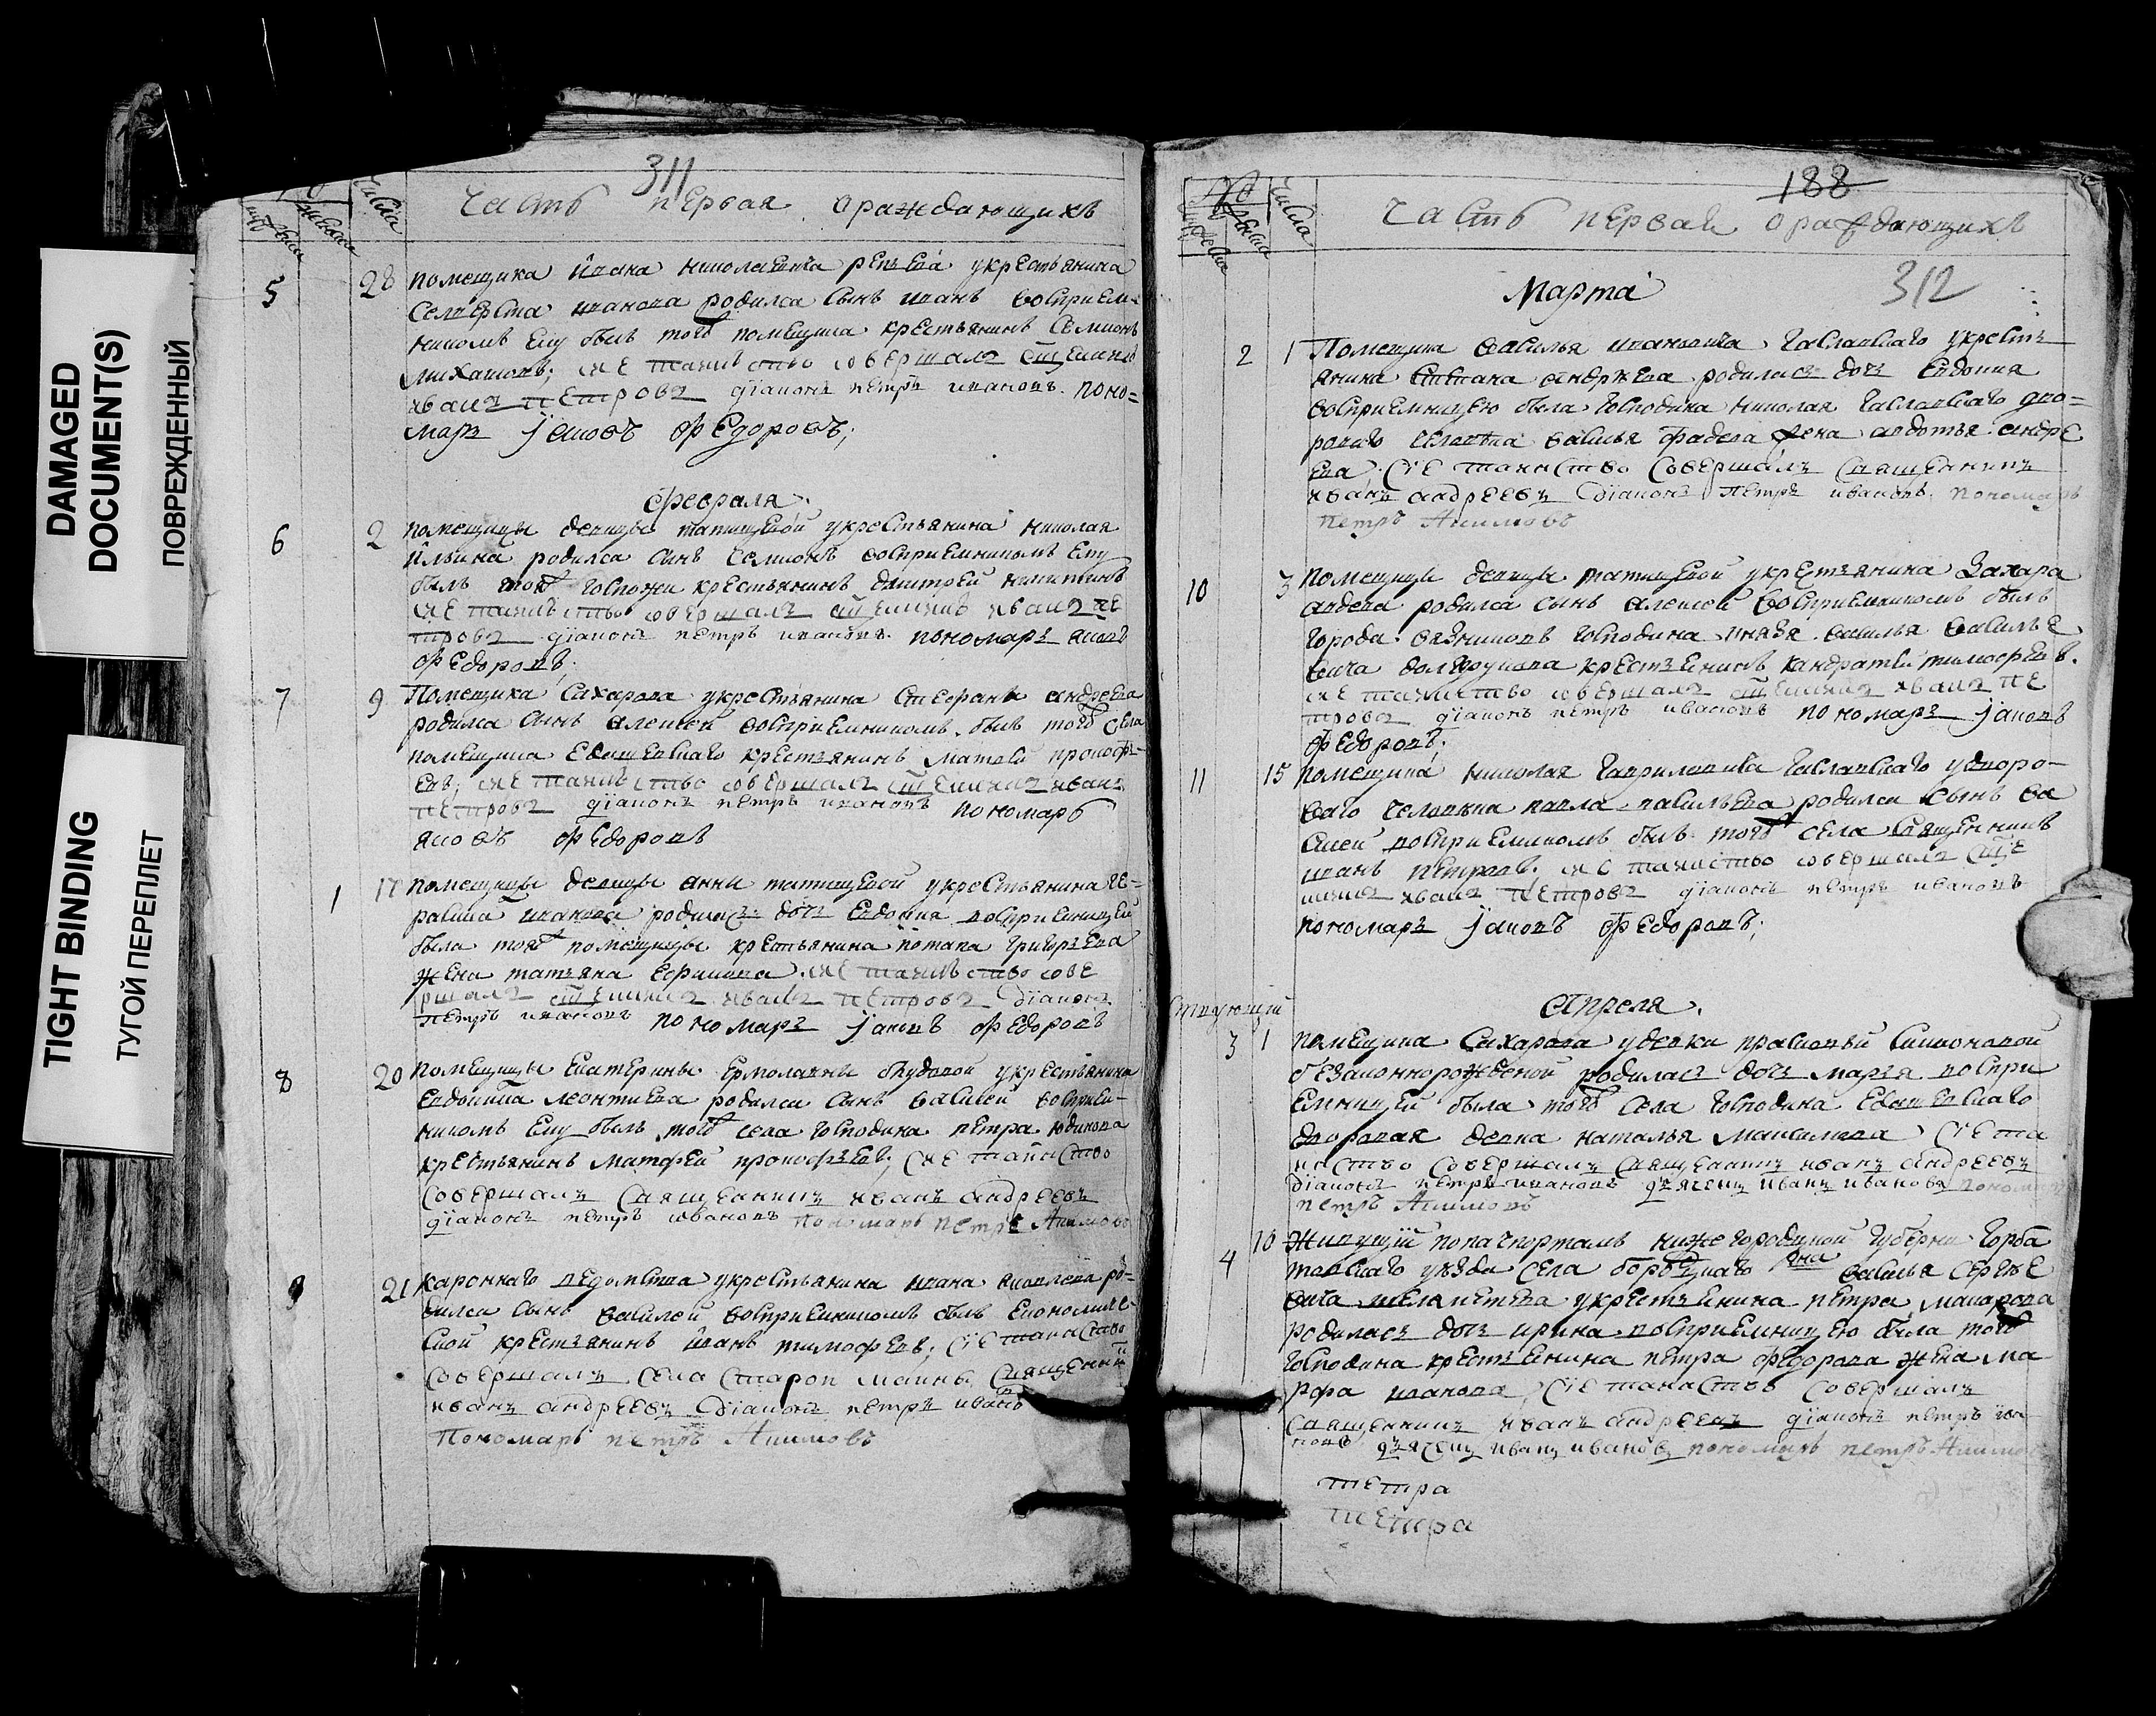 DAMAGED
DOCUMENT(S)
ПОВРЕЖДЕННЫЙ
TIGHT BINDING
ТУГОЙ ПЕРЕПЛЕТ
311
Числа
часть первая ораждающихъ
5 28 помещика ивана николаевича укрестьянина
иванова родился сынъ иванъ восприем-
никомъ ему былъ тогожъ помещика крестьянинъ Семионъ
сие таинство совершалъ сщенникъ
иванъ петровъ дiаконъ петръ ивановъ. поно=
марь jаковъ федоровъ;
февраля.
6 2 помещицы девицы татищевой укрестьянина николая
ильина родился сынъ семионъ восприемникомъ ему
былъ тояжъ госпожи крестьянинъ дмитрей никитинъ
сие таинство совершалъ сщенникъ иванъ пе
тровъ дiаконъ петръ ивановъ. пономарь яковъ
федоровъ;
7 9 Помещика Сахарова укрестьянина Стефана андреева
родился сынъ алексей восприемникомъ былъ тогожъ села
помещика крестьянинъ матвей прокофь-
евъ; сие таинство совершалъ сщенникъ иванъ
петровъ дiаконъ петръ ивановъ пономарь
яковъ федоровъ
1 17 помещицы девицы анны татищевой укрестьянина ге-
расима иванова родилась дочь евдокия восприемницей
была тояжъ помещицы крестьянина потапа григорьева
жена татьяна ефимова. сие таинство сове
ршалъ сщенникъ иванъ петровъ дiаконъ
петръ ивановъ пономарь jаковъ федоровъ
8 20 помещицы екатерины ермолавны укрестьянина
евдокима леонтиева родился сынъ василей восприем-
никомъ ему былъ тогожъ села господина петра юдинова
крестьянинъ матфей прокофьевъ; сие таинство
совершалъ священникъ иванъ андреевъ
дiаконъ петръ ивановъ пономарь петръ Акимовъ
9 21 кароннаго ведомства укрестьянина ивана яковлева ро-
дился сынъ василей восприемникомъ былъ економиче-
ской крестьянинъ иванъ тимофеев; сiе таинство
совершалъ села старой майны священникъ
иванъ андреевъ дiаконъ петръ ивановъ
Пономарь петръ Акимовъ
188
Числа
часть первая ораждающихъ
312
Марта
2 1 Помещика василья ивановича укресть
янина степана андреева родилась дочь евдокия
восприемницею была господина николая дво=
роваго человека василья фадеева жена авдотья андре
ева. сiе таинство совершалъ священникъ
иванъ андреевъ дiаконъ петръ ивановъ. пономарь
петръ Акимовъ
10 3 помещицы девицы татищевой укрестьянина Захара
авдеева родился сынъ алексей восприемникомъ былъ
города господина князя василья василье
вича долгорукова крестьенинъ кандратей тимофеевъ.
сие таинство совершалъ сщенникъ иванъ пе
тровъ дiаконъ петръ ивановъ пономарь jаковъ
федоровъ;
11 15 помещика николая гавриловича удворо-
ваго человека павла васильева родился сынъ ва
силей восприемникомъ былъ тогожъ села священникъ
иванъ петровъ. сие таинство совершалъ сще
нникъ иванъ петровъ дiаконъ петръ ивановъ
пономарь jаковъ федоровъ;
Апреля.
3 1 помещика Сахарова удевки прасковьи
безаконнорожденой родилась дочь марья воспри
емницей была тогожъ села господина
дворовая девка наталья максимова сiе та
инство совершалъ священникъ иванъ андреевъ
дiаконъ петръ ивановъ дьячекъ иванъ ивановъ пономарь
петръ Акимовъ
4 16 живущiй попачпортамъ нижегородцкой губерни горба
товскаго уезда села василья сергее
вича шеламетева укрестьенина петра макарова
родилась дочь ирина восприемницею была тогожъ
господина крестьенина петра федорова жена ма
рфа иванова; сiе таинство совершалъ
священникъ иванъ андреевъ дiаконъ петръ ива-
новъ дьячекъ иванъ ивановъ пономарь петръ Акимов
петра
петра